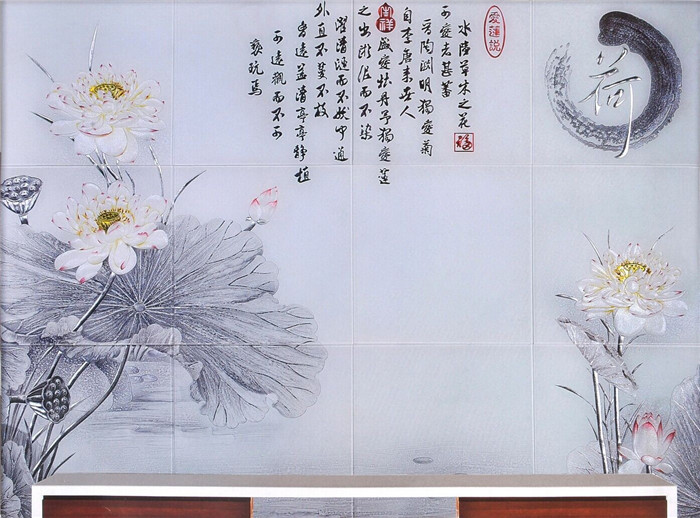 荷
愛蓮說
水陸草木之花
福
可愛者甚蕃
晉陶淵明獨愛菊
自李唐來世人
盛愛牡丹予獨愛蓮
之出淤泥而不染
濯清漣而不妖中通
外直不蔓不枝
香遠益清亭亭靜植
可遠觀而不可
褻玩焉